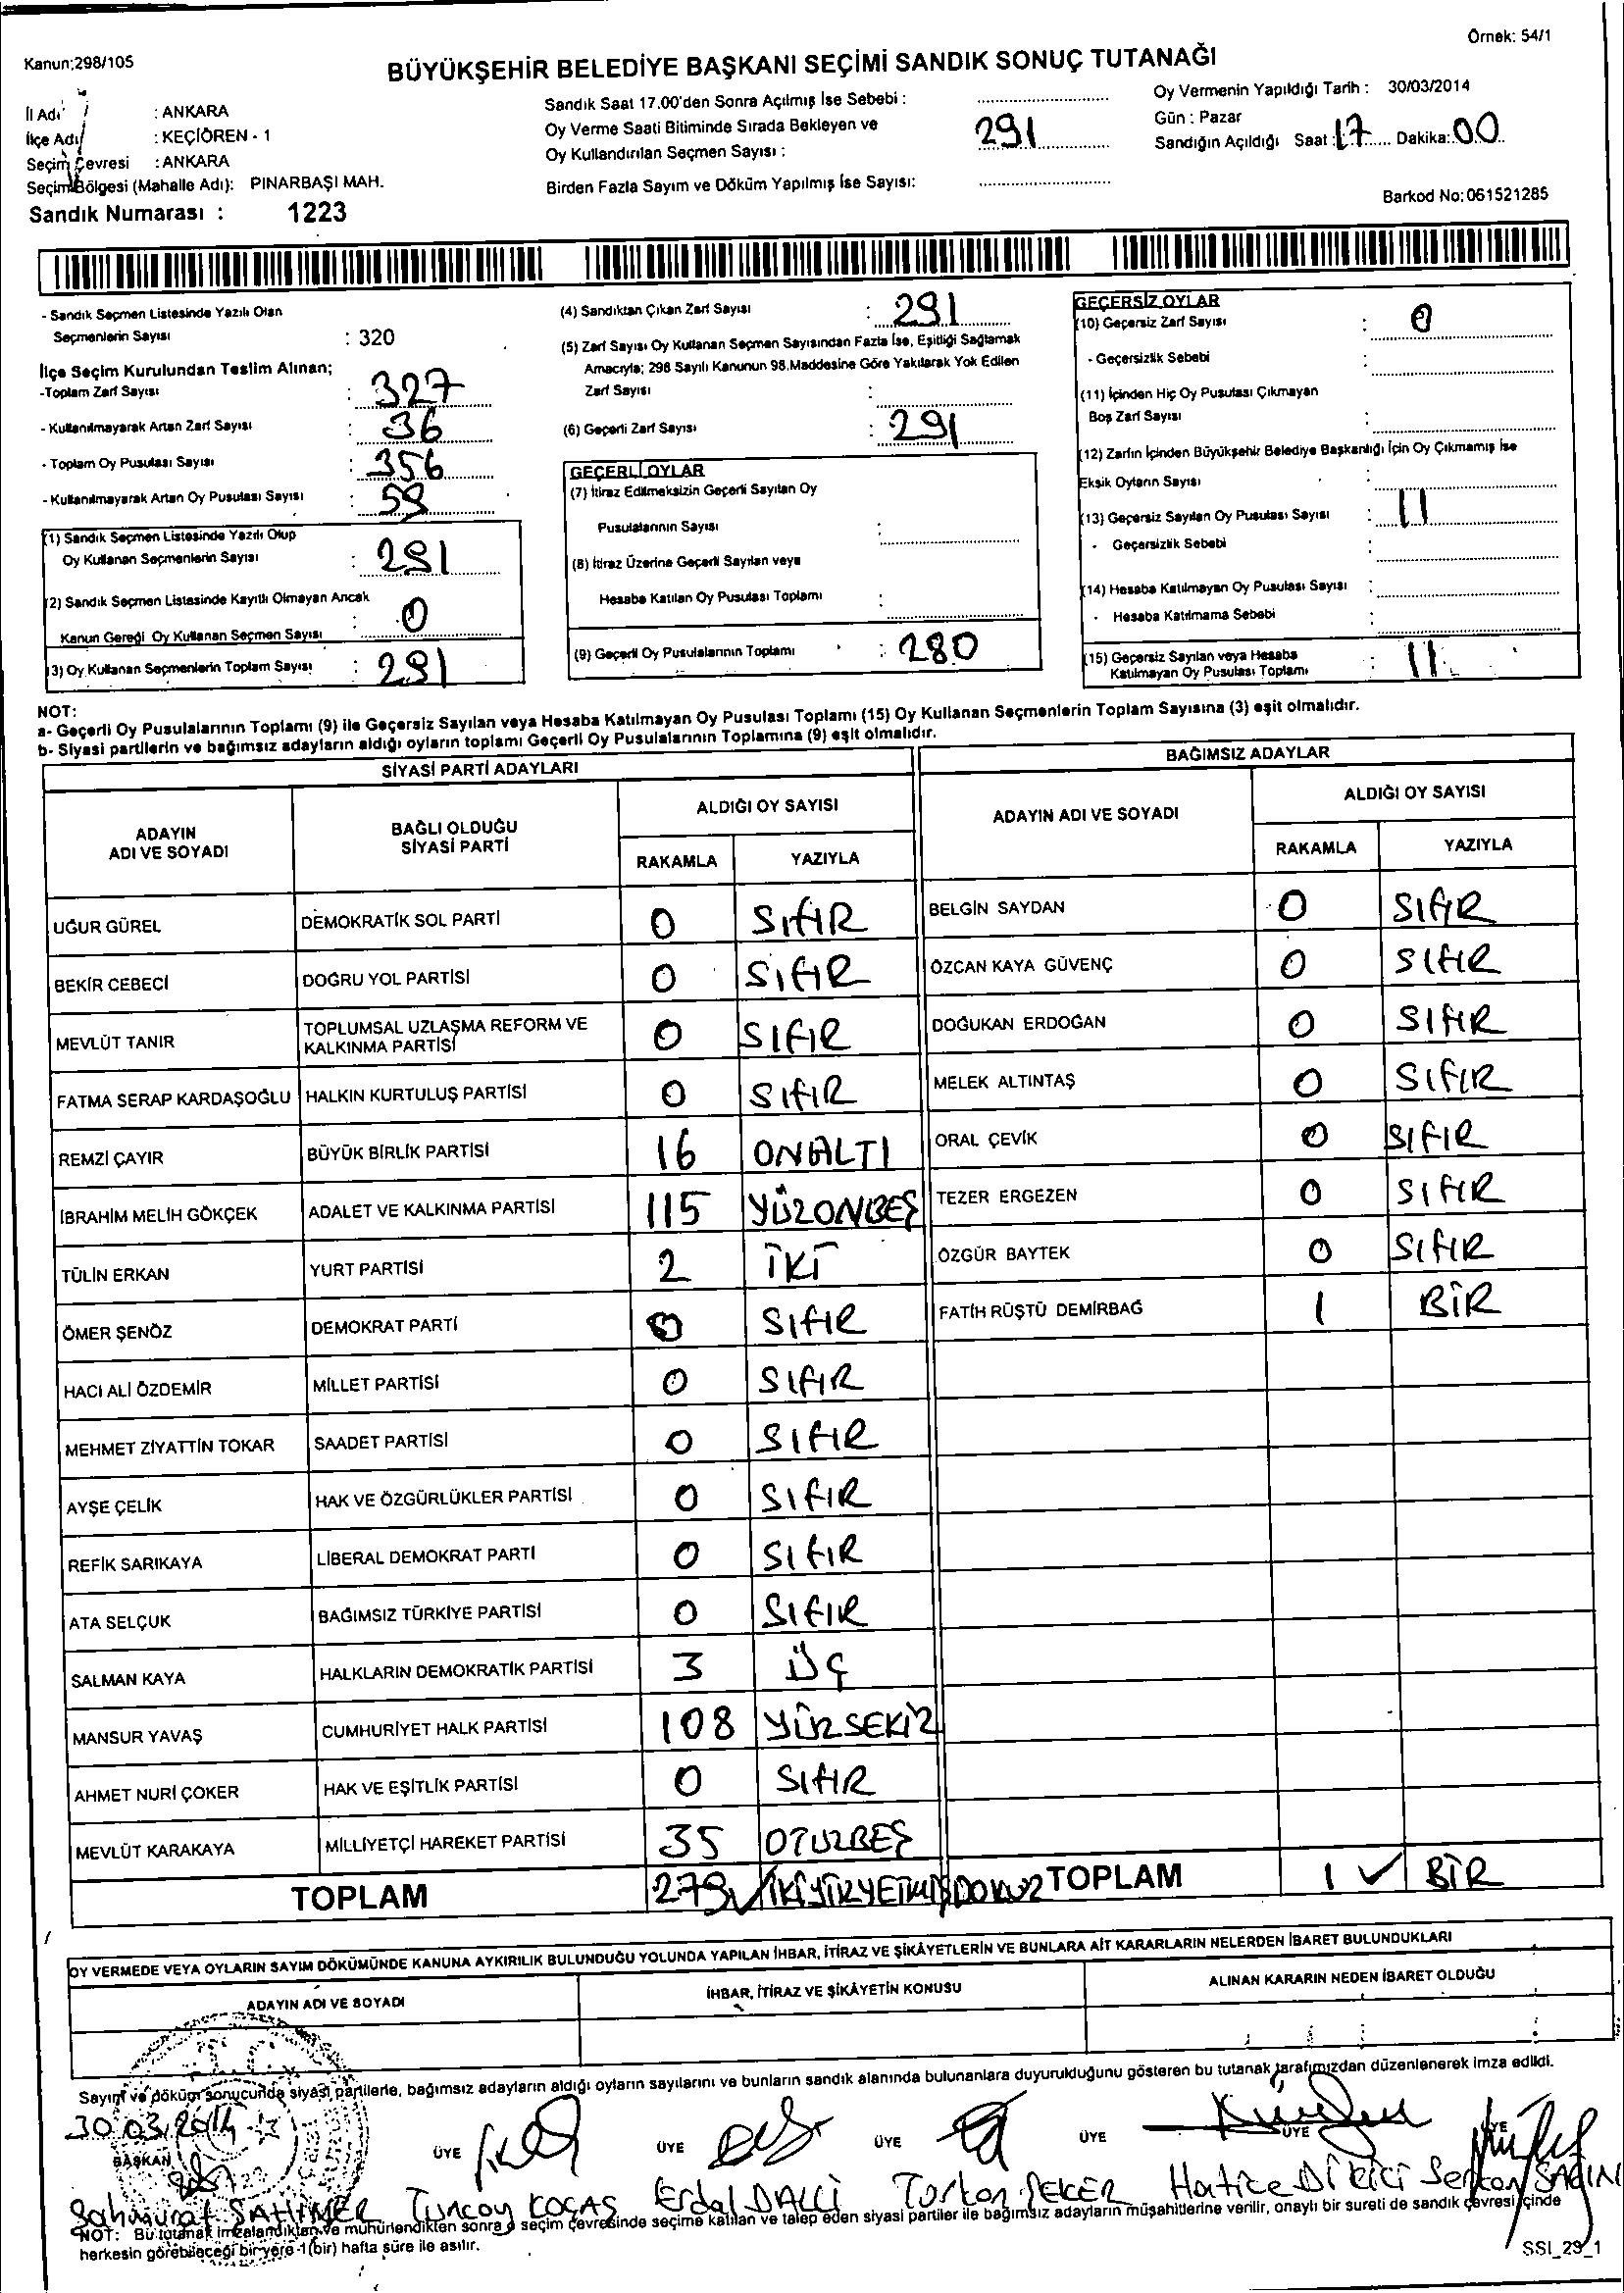 Örnek: 54/1
Kanun;298/105
BÜYÜKŞEHİR BELEDİYE BAŞKANI SEÇİMİ SANDIK SONUÇ TUTANAĞI
İl Adı : ANKARA
İlçe Adı : KEÇİÖREN - 1
Seçim Çevresi : ANKARA
Seçim Bölgesi (Mahalle Adı): PINARBAŞI MAH.
Sandık Numarası : 1223
Sandık Saat 17.00'den Sonra Açılmış İse Sebebi :
Oy Verme Saati Bitiminde Sırada Bekleyen ve
Oy Kullandırılan Seçmen Sayısı : 291
Birden Fazla Sayım ve Döküm Yapılmış İse Sayısı:
Oy Vermenin Yapıldığı Tarih : 30/03/2014
Gün : Pazar
Sandığın Açıldığı Saat : 17 Dakika: 00
Barkod No: 061521285
- Sandık Seçmen Listesinde Yazılı Olan
Seçmenlerin Sayısı : 320
İlçe Seçim Kurulundan Teslim Alınan;
-Toplam Zarf Sayısı : 327
- Kullanılmayarak Artan Zarf Sayısı : 36
- Toplam Oy Pusulası Sayısı : 356
- Kullanılmayarak Artan Oy Pusulası Sayısı : 59
(1) Sandık Seçmen Listesinde Yazılı Olup
Oy Kullanan Seçmenlerin Sayısı : 291
(2) Sandık Seçmen Listesinde Kayıtlı Olmayan Ancak
Kanun Gereği Oy Kullanan Seçmen Sayısı : 0
(3) Oy Kullanan Seçmenlerin Toplam Sayısı : 291
(4) Sandıktan Çıkan Zarf Sayısı : 291
(5) Zarf Sayısı Oy Kullanan Seçmen Sayısından Fazla İse, Eşitliği Sağlamak
Amacıyla; 298 Sayılı Kanunun 98.Maddesine Göre Yakılarak Yok Edilen
Zarf Sayısı :
(6) Geçerli Zarf Sayısı : 291
GEÇERLİ OYLAR
(7) İtiraz Edilmeksizin Geçerli Sayılan Oy
Pusulalarının Sayısı :
(8) İtiraz Üzerine Geçerli Sayılan veya
Hesaba Katılan Oy Pusulası Toplamı :
(9) Geçerli Oy Pusulalarının Toplamı : 280
GEÇERSİZ OYLAR
(10) Geçersiz Zarf Sayısı : 0
- Geçersizlik Sebebi :
(11) İçinden Hiç Oy Pusulası Çıkmayan
Boş Zarf Sayısı :
(12) Zarfın İçinden Büyükşehir Belediye Başkanlığı İçin Oy Çıkmamış İse
Eksik Oyların Sayısı :
(13) Geçersiz Sayılan Oy Pusulası Sayısı : 11
- Geçersizlik Sebebi :
(14) Hesaba Katılmayan Oy Pusulası Sayısı :
- Hesaba Katılmama Sebebi :
(15) Geçersiz Sayılan veya Hesaba
Katılmayan Oy Pusulası Toplamı : 11
NOT:
a- Geçerli Oy Pusulalarının Toplamı (9) ile Geçersiz Sayılan veya Hesaba Katılmayan Oy Pusulası Toplamı (15) Oy Kullanan Seçmenlerin Toplam Sayısına (3) eşit olmalıdır.
b- Siyasi partilerin ve bağımsız adayların aldığı oyların toplamı Geçerli Oy Pusulalarının Toplamına (9) eşit olmalıdır.
SİYASİ PARTİ ADAYLARI
ADAYIN ADI VE SOYADI BAĞLI OLDUĞU SİYASİ PARTİ ALDIĞI OY SAYISI RAKAMLA YAZIYLA
UĞUR GÜREL DEMOKRATİK SOL PARTİ 0 SIFIR
BEKİR CEBECİ DOĞRU YOL PARTİSİ 0 SIFIR
MEVLÜT TANIR TOPLUMSAL UZLAŞMA REFORM VE KALKINMA PARTİSİ 0 SIFIR
FATMA SERAP KARDAŞOĞLU HALKIN KURTULUŞ PARTİSİ 0 SIFIR
REMZİ ÇAYIR BÜYÜK BİRLİK PARTİSİ 16 ONALTI
İBRAHİM MELİH GÖKÇEK ADALET VE KALKINMA PARTİSİ 115 YÜZONBEŞ
TÜLİN ERKAN YURT PARTİSİ 2 İKİ
ÖMER ŞENÖZ DEMOKRAT PARTİ 0 SIFIR
HACI ALİ ÖZDEMİR MİLLET PARTİSİ 0 SIFIR
MEHMET ZİYATTİN TOKAR SAADET PARTİSİ 0 SIFIR
AYŞE ÇELİK HAK VE ÖZGÜRLÜKLER PARTİSİ 0 SIFIR
REFİK SARIKAYA LİBERAL DEMOKRAT PARTİ 0 SIFIR
ATA SELÇUK BAĞIMSIZ TÜRKİYE PARTİSİ 0 SIFIR
SALMAN KAYA HALKLARIN DEMOKRATİK PARTİSİ 3 ÜÇ
MANSUR YAVAŞ CUMHURİYET HALK PARTİSİ 108 YÜZSEKİZ
AHMET NURİ ÇOKER HAK VE EŞİTLİK PARTİSİ 0 SIFIR
MEVLÜT KARAKAYA MİLLİYETÇİ HAREKET PARTİSİ 35 OTUZBEŞ
TOPLAM 279 İKİYÜZYETMİŞDOKUZ
BAĞIMSIZ ADAYLAR
ADAYIN ADI VE SOYADI ALDIĞI OY SAYISI RAKAMLA YAZIYLA
BELGİN SAYDAN 0 SIFIR
ÖZCAN KAYA GÜVENÇ 0 SIFIR
DOĞUKAN ERDOĞAN 0 SIFIR
MELEK ALTINTAŞ 0 SIFIR
ORAL ÇEVİK 0 SIFIR
TEZER ERGEZEN 0 SIFIR
ÖZGÜR BAYTEK 0 SIFIR
FATİH RÜŞTÜ DEMİRBAĞ 1 BİR
TOPLAM 1 BİR
OY VERMEDE VEYA OYLARIN SAYIM DÖKÜMÜNDE KANUNA AYKIRILIK BULUNDUĞU YOLUNDA YAPILAN İHBAR, İTİRAZ VE ŞİKÂYETLERİN VE BUNLARA AİT KARARLARIN NELERDEN İBARET BULUNDUKLARI
ADAYIN ADI VE SOYADI İHBAR, İTİRAZ VE ŞİKÂYETİN KONUSU ALINAN KARARIN NEDEN İBARET OLDUĞU
Sayım ve döküm sonucunda siyasi partilerle, bağımsız adayların aldığı oyların sayılarını ve bunların sandık alanında bulunanlara duyurulduğunu gösteren bu tutanak tarafımızdan düzenlenerek imza edildi.
30.03.2014
BAŞKAN ÜYE ÜYE ÜYE ÜYE ÜYE ÜYE
Tuncay KOÇAŞ Erdal DALCI Türkan PEKER Hatice DİKİCİ Serkan
NOT: Bu tutanak imzalandıktan ve mühürlendikten sonra o seçim çevresinde seçime katılan ve talep eden siyasi partiler ile bağımsız adayların müşahitlerine verilir, onaylı bir sureti de sandık çevresi içinde
herkesin görebileceği bir yere 1 (bir) hafta süre ile asılır.
SSI_29_1